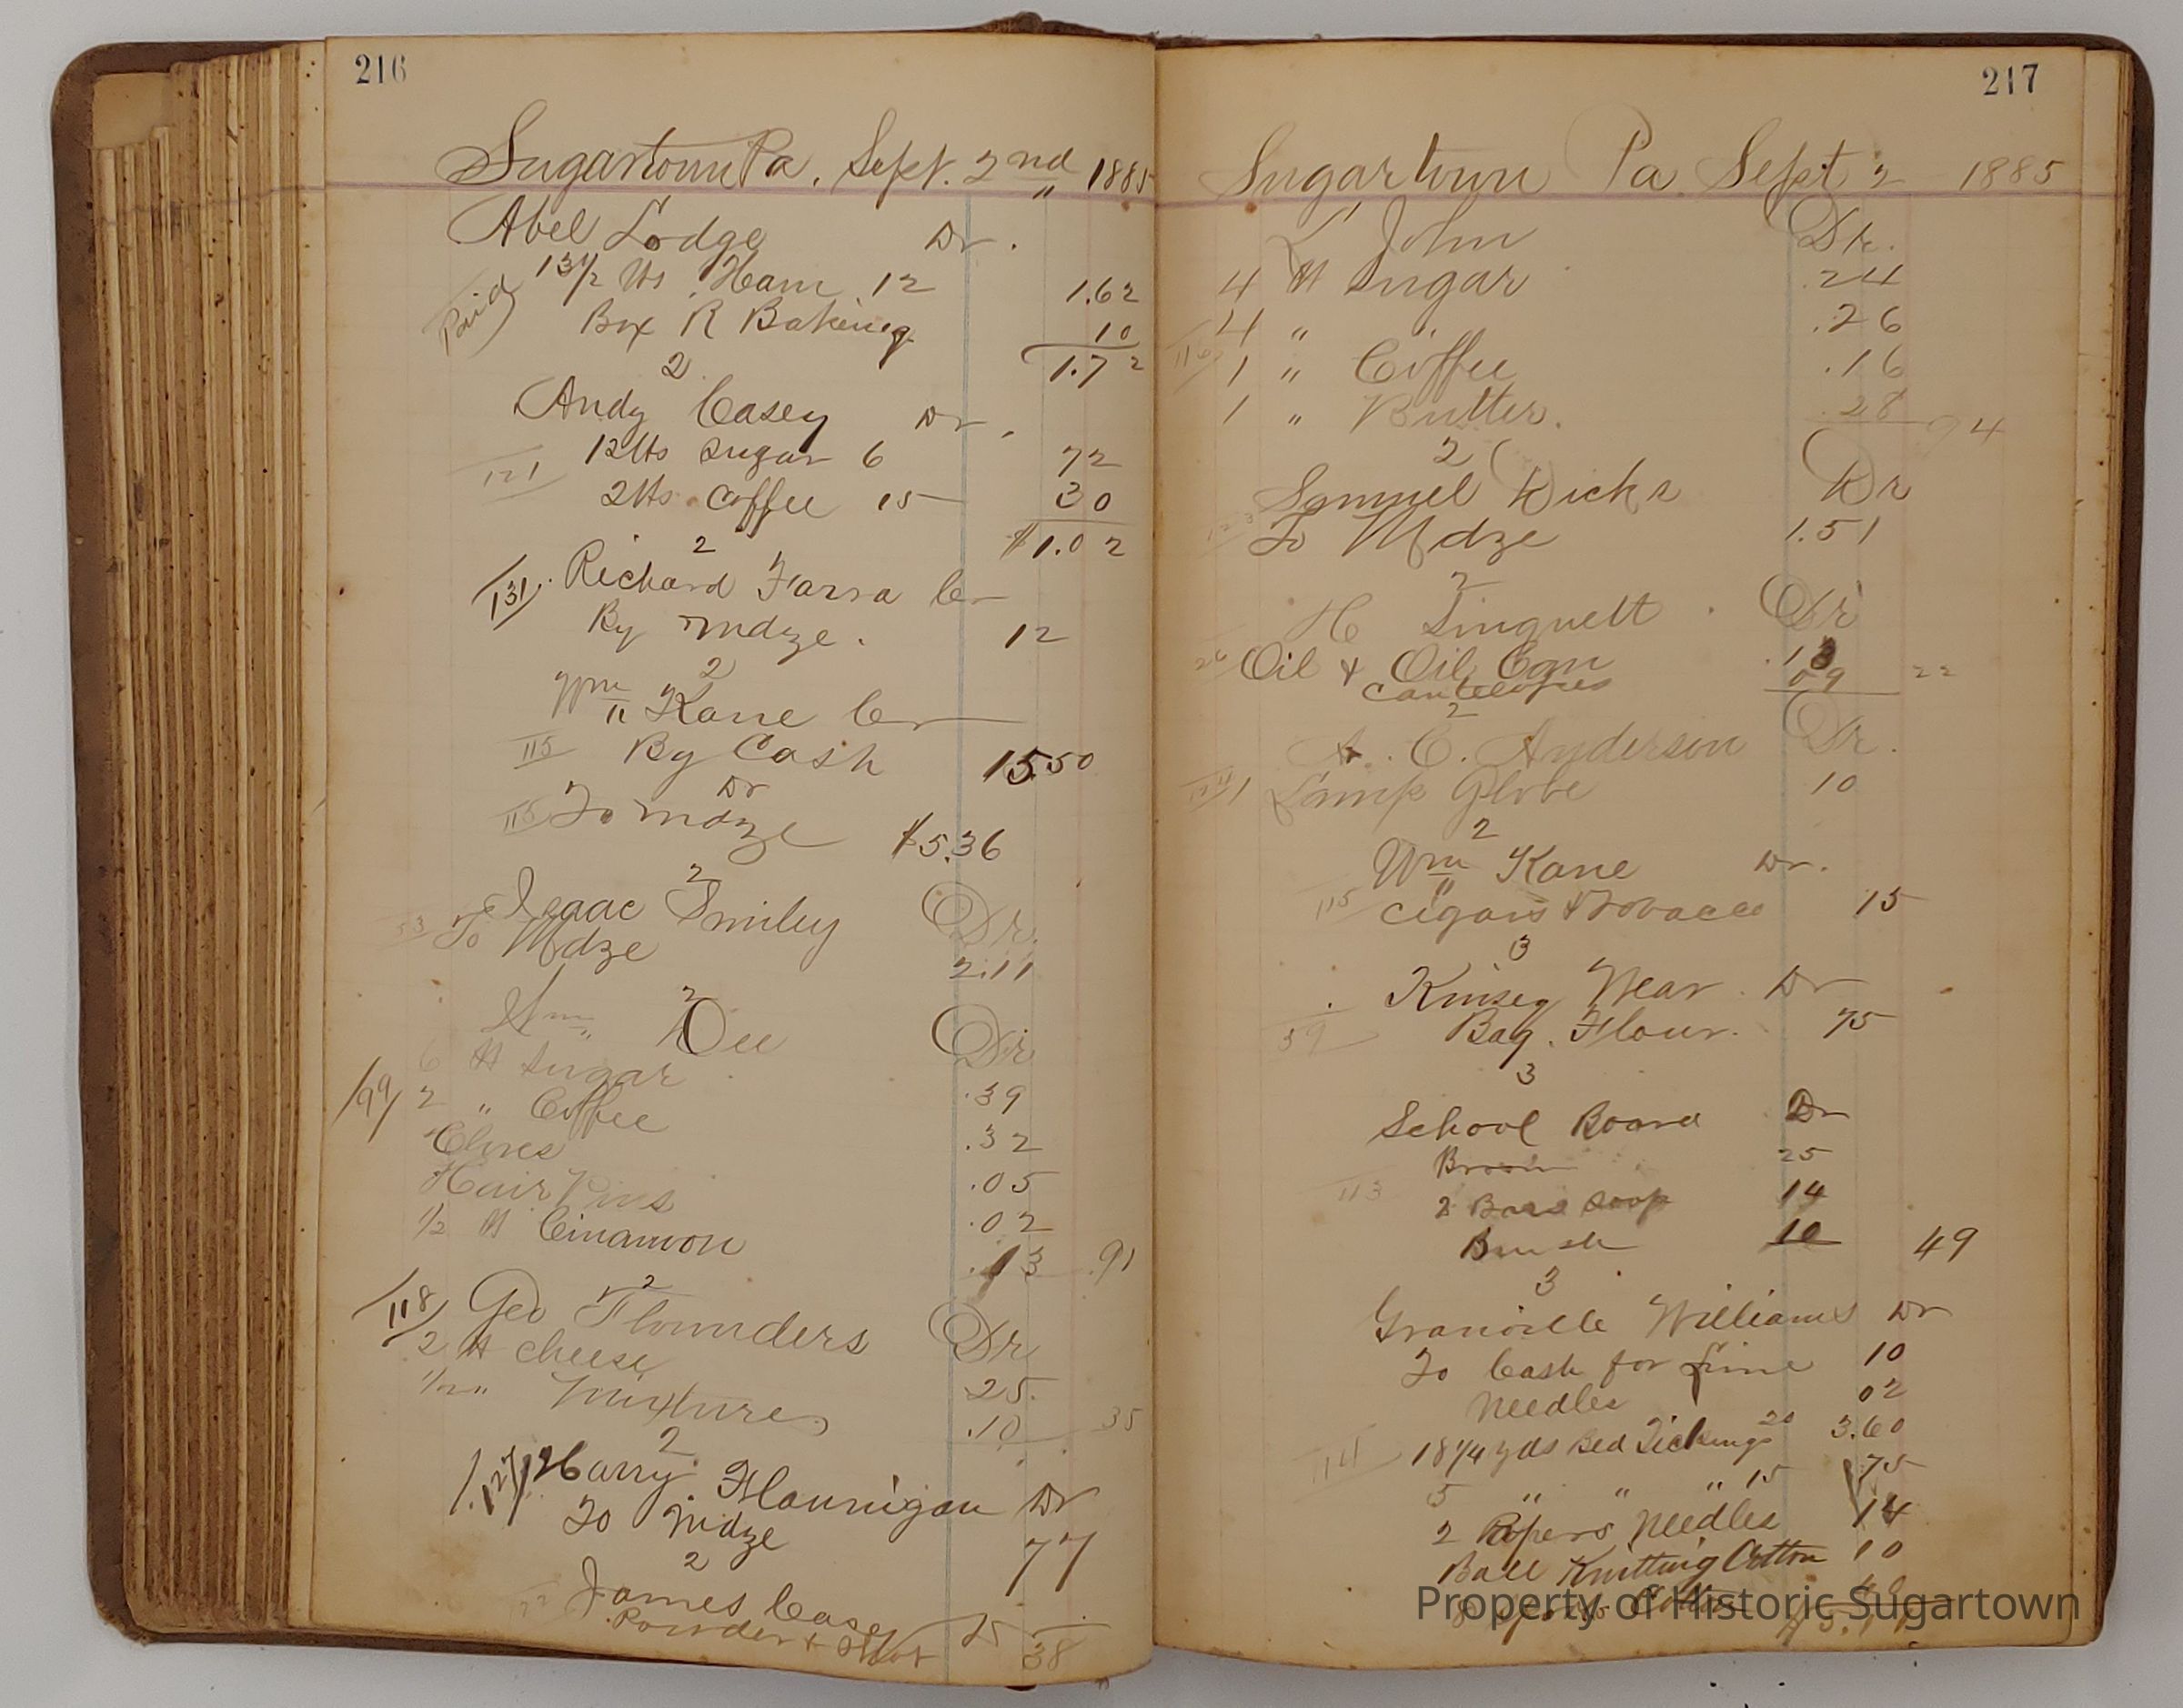 216
Sugartown Pa. Sept. 2nd 1885
Abel Lodge Dr.
Paid 13 1/2 lbs Ham 12 1.62
Box R Baking 10
1.72
2
Andy Casey Dr.
121 12 lbs Sugar 6 72
2 lbs Coffee 15 30
$1.02
2
131 Richard Farra Cr
By mdze. 12
2
Wm Kane Cr
115 By Cash 15.50
Dr
115 To mdze $5.36
2
Isaac Smiley Dr.
53 To Mdze 2.11
2
Wm Dee Dr
6 lb Sugar .39
199 2 " Coffee .32
Cloves .05
Hair Pins .02
1/2 lb Cinamon .13 .91
2
118 Geo Flounders Dr
2 lb cheese 25.
1/2 " Mixtures .10 35
2
127 Harry Flannigan Dr
To Mdze 77
2
James Casey Dr
Powder & Shot 38
217
Sugartown Pa. Sept. 2 1885
L John Dr.
4 lb Sugar .24
4 " .26
116 1 " Coffee .16
1 " Butter. .28 94
2
Samuel Dicks Dr
123 To Mdze 1.51
2
H Linquett Dr
26 Oil & Oil Can .13
Cantelopes 09 22
2
A. C. Anderson Dr.
1 Lamp Globe 10
2
Wm Kane Dr.
115 Cigars & Tobacco 15
3
Kinsey Wear Dr
59 Bag. Flour. 75
3
School Board Dr
Broom 25
113 2 Bars Soap 14
Brush 10 49
3
Granville Williams Dr
To Cash for Lime 10
Needles 02
114 18 1/4 yds Bed Ticking 20 3.60
5 " " " 15 .75
2 Papers Needles 14
Ball Knitting Cotton 10
8 Spools Cotton
Property of Historic Sugartown